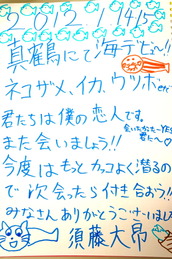 2012 / 9 / 4,5
真鶴にて海デビュー!!
ネコザメ、イカ、ウツボetc
君たちは僕の恋人です。
また会いましょう!!
今度はもっとカッコよく潜るの
で次会ったら付き合おう!!
みなさんありがとうございました
須藤大昂